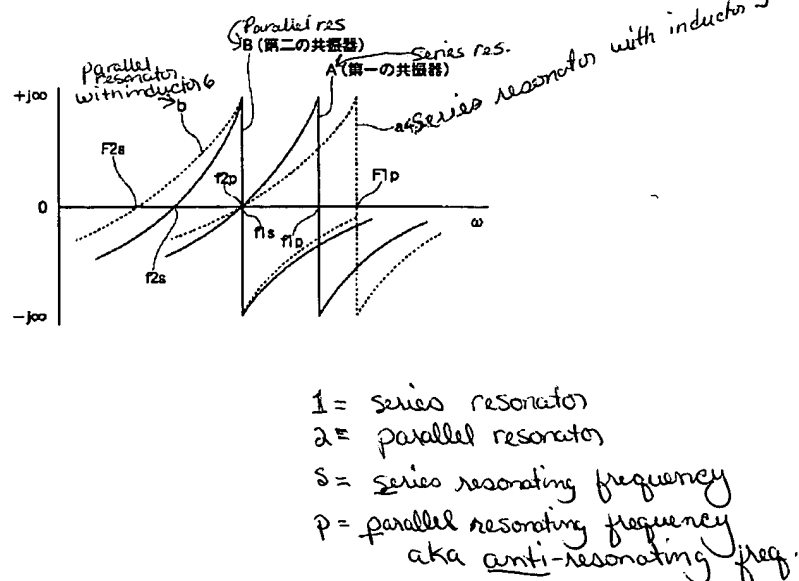 Parallel res
B (第二の共振器)
Series res.
A (第一の共振器)
Series resonator with inductor
Parallel
resonator
with inductor 6
b
a
+j∞
F2s
f2p
F1p
0
ω
f1s
f1p
f2s
-j∞
1 = series resonator
2 = parallel resonator
S = series resonating frequency
P = parallel resonating frequency
aka anti-resonating freq.